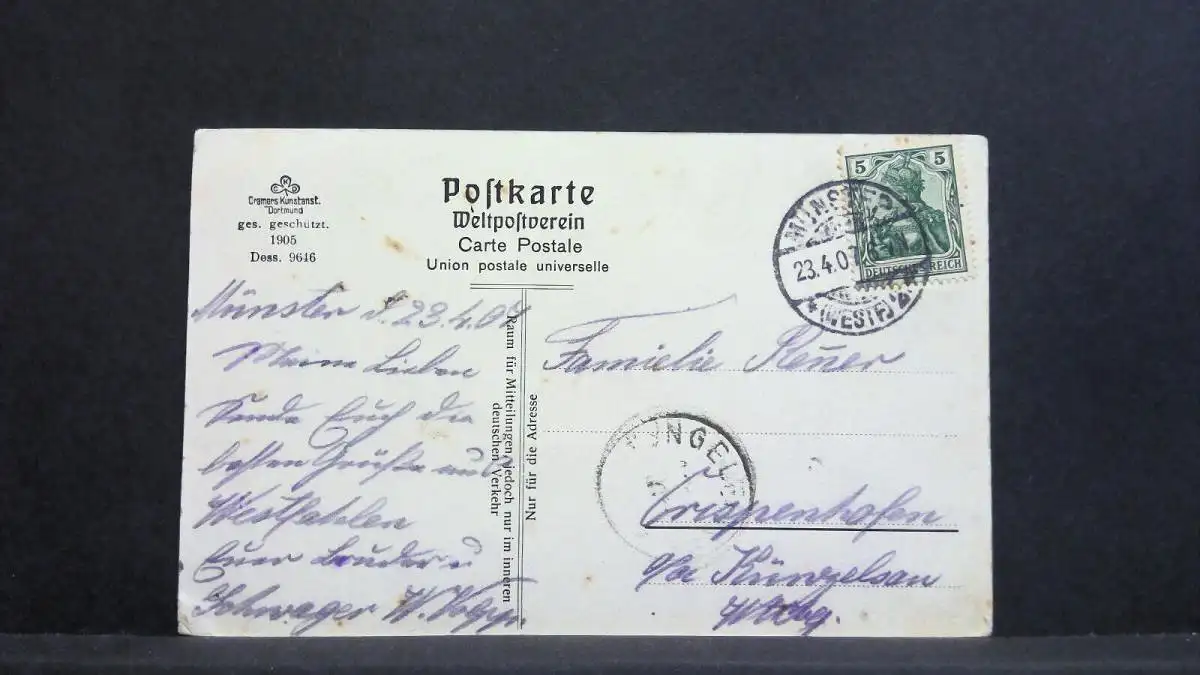 Cramers Kunstanst.
Dortmund
ges. geschützt.
1905
Dess. 9646
Poſtkarte
Weltpoſtverein
Carte Postale
Union postale universelle
5 5
DEUTSCHES REICH
MÜNSTER
23.4.07
(WESTF.)
Münster d. 23.4.07
Meine Lieben
Sende Euch die
besten Grüße aus
Westfahlen
Euer Bruder u
Schwager W.
Raum für Mitteilungen, jedoch nur im inneren
deutschen Verkehr
Nur für die Adresse
Familie
Crispenhofen
Künzelsau
Wttbg.